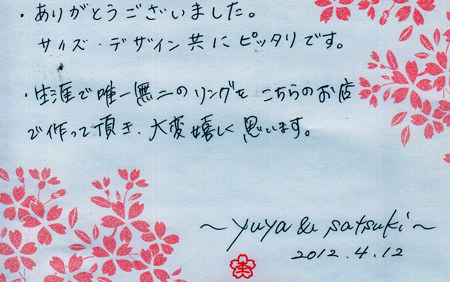 ・ありがとうございました。
サイズ・デザイン共にピッタリです。
・生涯で唯一無二のリングを こちらのお店
で作って頂き、大変嬉しく思います。
～yuya & satsuki～
2012.4.12